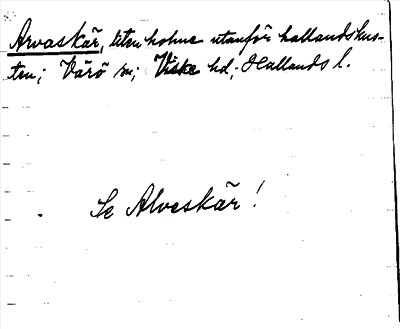 Arvaskär, liten holme utanför hallandskus-
ten; Värö sn; Viske hd; Hallands l.
Se Alveskär!